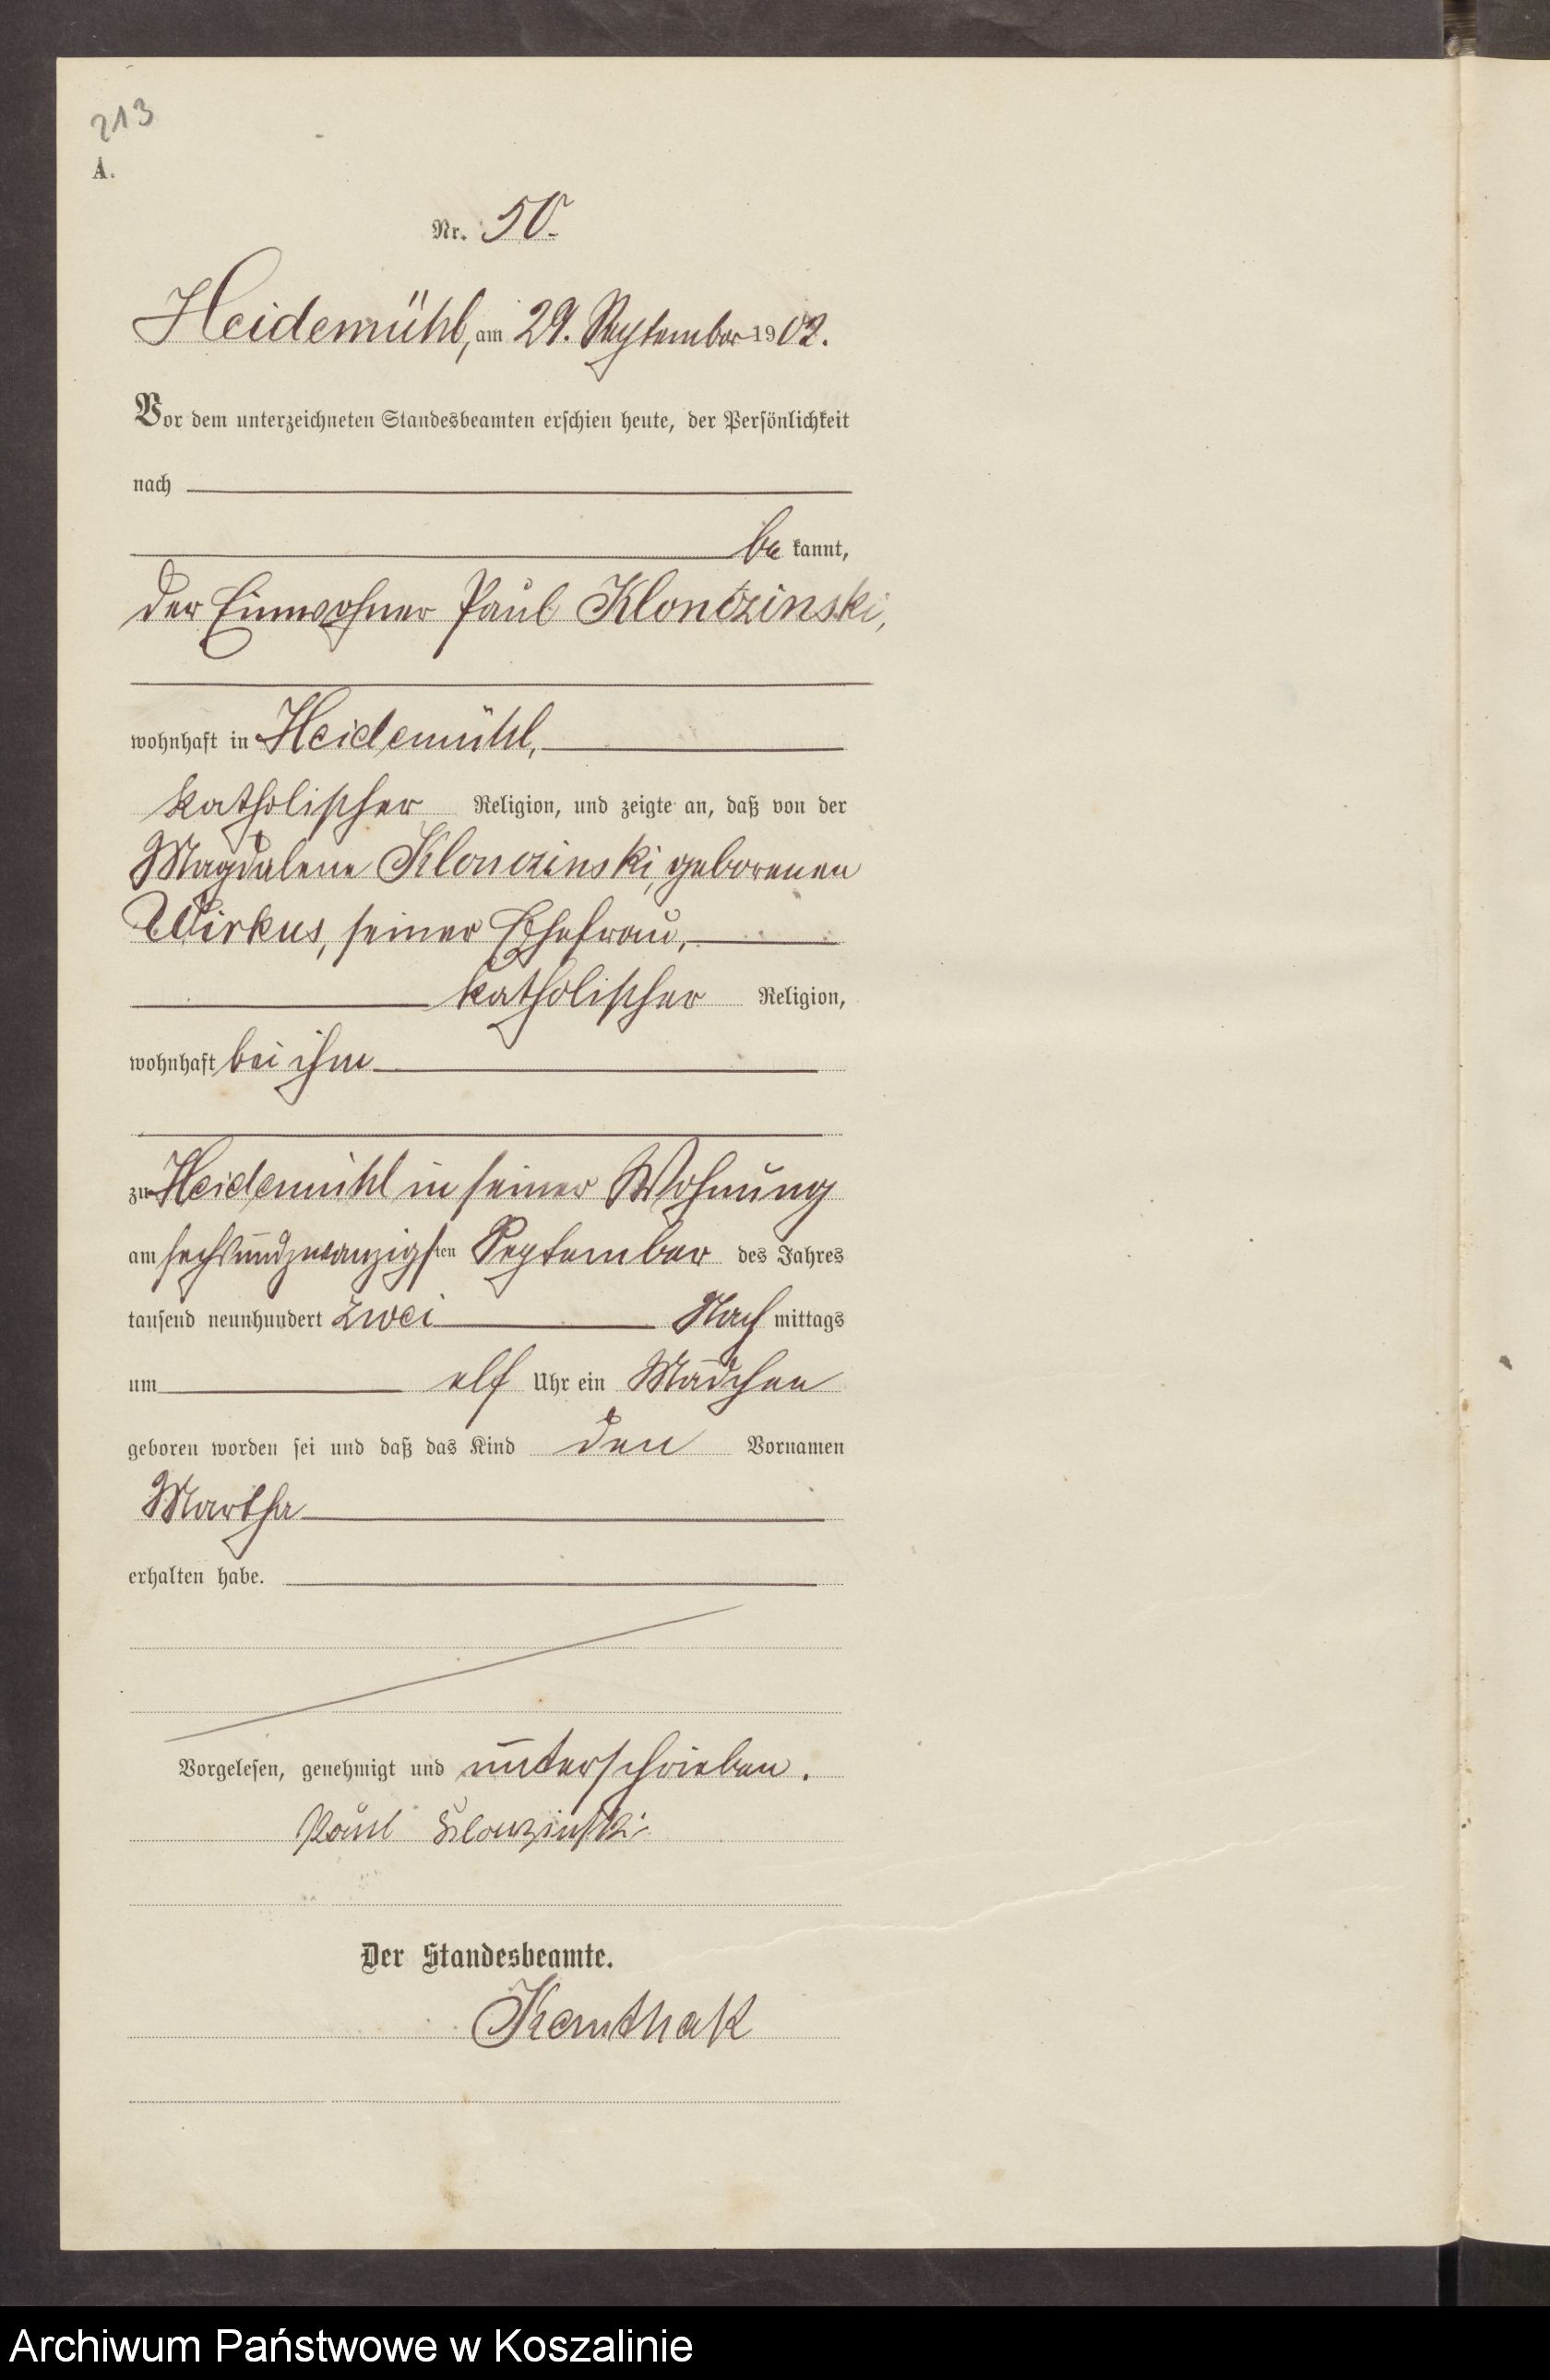 213
A.
Nr. 50.
Heidemühl, am 29. September 1902.
Vor dem unterzeichneten Standesbeamten erschien heute, der Persönlichkeit
nach
be kannt,
der Einwohner Paul Klonczinski,
wohnhaft in Heidemühl,
katholischer Religion, und zeigte an, daß von der
Magdalene Klonczinski, geborenen
Wirkus, seiner Ehefrau,
katholischer Religion,
wohnhaft bei ihm
zu Heidemühl in seiner Wohnung
am sechsundzwanzigsten September des Jahres
tausend neunhundert zwei Nach mittags
um elf Uhr ein Mädchen
geboren worden sei und daß das Kind den Vornamen
Martha
erhalten habe.
Vorgelesen, genehmigt und unterschrieben.
Paul Klonzinski
Der Standesbeamte.
Kanthak
Archiwum Państwowe w Koszalinie